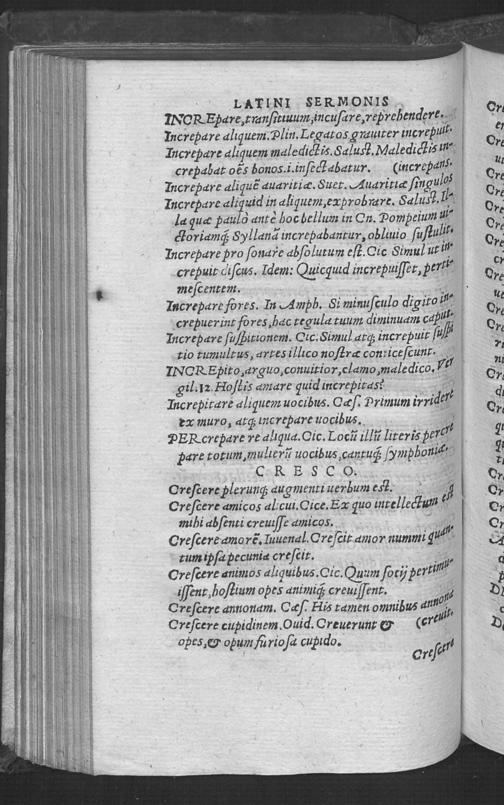 LATINI SERMONIS
INCREpare, transitiuum, incusare, reprehendere.
Increpare aliquem. Plin. Legatos grauiter increpuit.
Increpare aliquem maledictis. Salust. Maledictis in-
crepabat oẽs bonos. i. insectabatur. (increpans.
Increpare aliquẽ auaritiæ. Suet. Auaritiæ singulos
Increpare aliquid in aliquem, exprobrare. Salust. Il-
la quæ paulò antè hoc bellum in Cn. Pompeium ui-
ctoriamq; Syllanã increpabantur, obliuio sustulit.
Increpare pro sonare absolutum est. Cic Simul ut in-
crepuit discus. Idem: Quicquid increpuisset, perti-
mescentem.
Increpare fores. In Amph. Si minusculo digito in-
crepuerint fores, hac tegula tuum diminuam caput.
Increpare suspitionem. Cic. Simul atq; increpuit suspi
tio tumultus, artes illico nostræ conticescunt.
INCREpito, arguo, conuitior, clamo, maledico. Ver
gil. 12. Hostis amare quid increpitas?
Increpitare aliquem uocibus. Cæs. Primum irridere
ex muro, atq; increpare uocibus.
PERcrepare re aliqua. Cic. Locũ illũ literis percre
pare totum, mulierũ uocibus, cantuq; symphoniæ.
CRESCO.
Crescere plerunq; augmenti uerbum est.
Crescere amicos alicui. Cice. Ex quo intellectum est
mihi absenti creuisse amicos.
Crescere amorẽ. Iuuenal. Crescit amor nummi quan-
tum ipsa pecunia crescit.
Crescere animos aliquibus. Cic. Quum sotij pertimu-
issent, hostium opes animiq; creuissent.
Crescere annonam. Cæs. His tamen omnibus annona
Crescere cupidinem. Ouid. Creuerunt & (creuit.
opes, & opum furiosa cupido.
Crescere